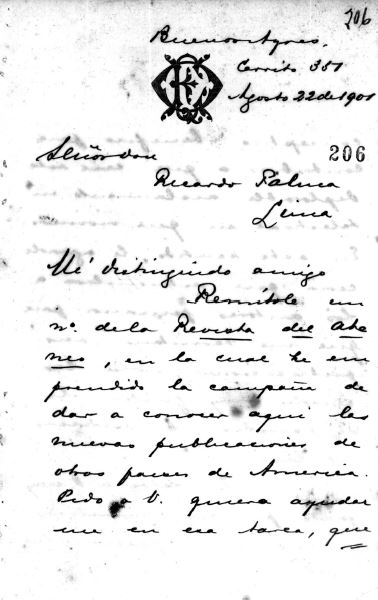 206
Buenos Ayres,
Cerrito 351
Agosto 22 de 1901
Señor don
206
Ricardo Palma
Lima
Mi distinguido amigo
Remítole un
nº. de la Revista del Ate
neo, en la cual he em
prendido la campaña de
dar a conocer aquí las
nuevas publicaciones de
otros paises de America.
Pido a V. quiera ayudar
me en esa tarea, que